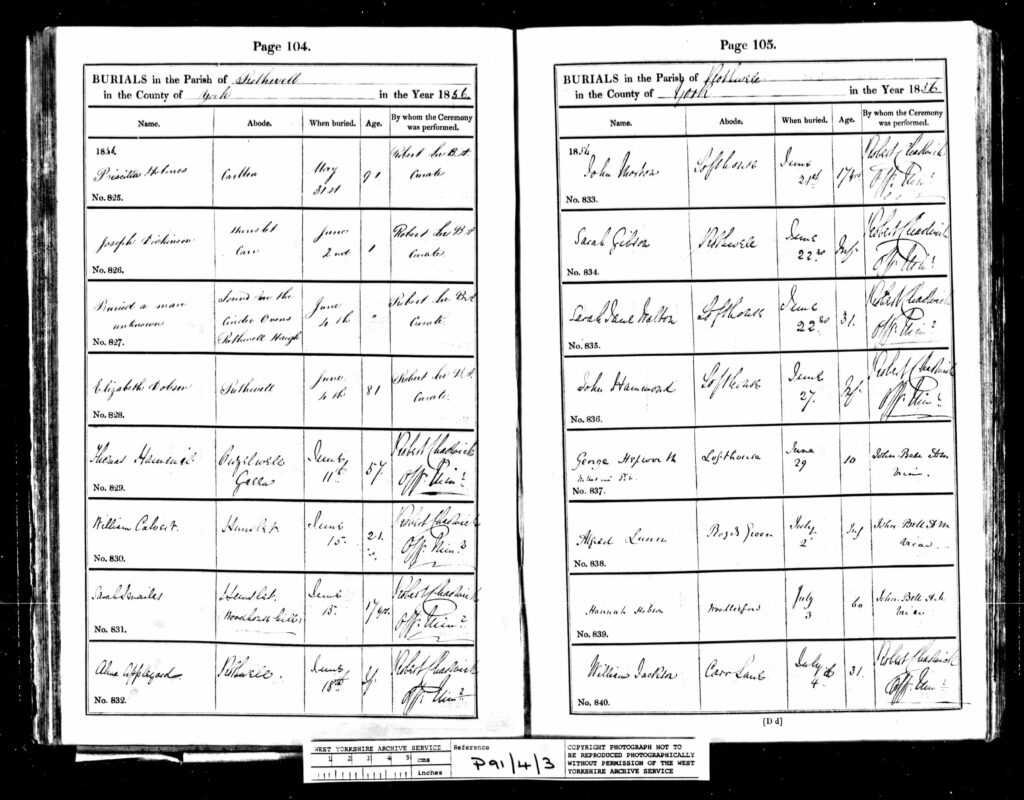 Page 104.
BURIALS in the Parish of Rothwell
in the County of York in the Year 1856.
Name. Abode. When buried. Age. By whom the Ceremony was performed.
1856.
Priscilla Holmes Carlton May 31st 90 Robert B.A. Curate
No. 825.
Joseph Dickinson Hunslet Carr June 2nd Robert B.A. Curate
No. 826.
Buried a man unknown found in the Cinder Ovens Rothwell Haigh June 4th " Robert B.A. Curate
No. 827.
Elizabeth Dobson Rothwell June 4th 81 Robert B.A. Curate.
No. 828.
Thomas June 11th 57. Robert Chadwick Off. Min.
No. 829.
William Calvert. Hunslet. June 15. 21. Robert Chadwick Off. Min.
No. 830.
Sarah Hunslet. Woodhouse Hill June 15. 17 Robert Chadwick Off. Min.
No. 831.
Appleyard Rothwell. June 18th Robert Chadwick Off. Min.
No. 832.
Page 105.
BURIALS in the Parish of Rothwell
in the County of York in the Year 1856
Name. Abode. When buried. Age. By whom the Ceremony was performed.
1856.
John Morton Lofthouse June 21st. 17 Robert Chadwick Off. Min.
No. 833.
Sarah Gibson Rothwell June 22nd Inf. Robert Chadwick Off. Min.
No. 834.
Sarah Jane Walton Lofthouse June 22nd 31. Robert Chadwick Off. Min.
No. 835.
John Hammond Lofthouse June 27. Inf. Robert Chadwick Off. Min.
No. 836.
George Hepworth Lofthouse June 29 10 John Bell Vicar.
No. 837.
Alfred Lunn July 2 Inf John Bell Vicar
No. 838.
Hannah Hobson Woodlesford July 3 60 John Bell Vicar
No. 839.
William Jackson Carr Lane July 4. 31. Robert Chadwick Off. Min.
No. 840.
[D d]
WEST YORKSHIRE ARCHIVE SERVICE
1 2 3 4 5 cms
inches
Reference
P91/4/3
COPYRIGHT PHOTOGRAPH NOT TO
BE REPRODUCED PHOTOGRAPHICALLY
WITHOUT PERMISSION OF THE WEST
YORKSHIRE ARCHIVE SERVICE